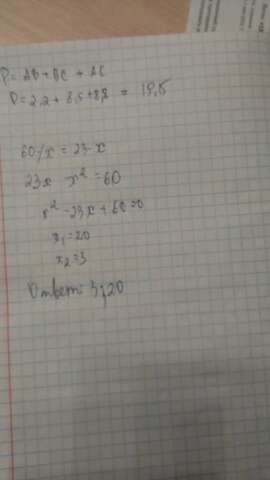 P = AB + BC + AC
P = 2,2 + 8,5 + 8,8 = 19,5
60/x = 23-x
23x x² = 60
x² - 23x + 60 = 0
x₁ = 20
x₂ = 3
Ответ: 3; 20